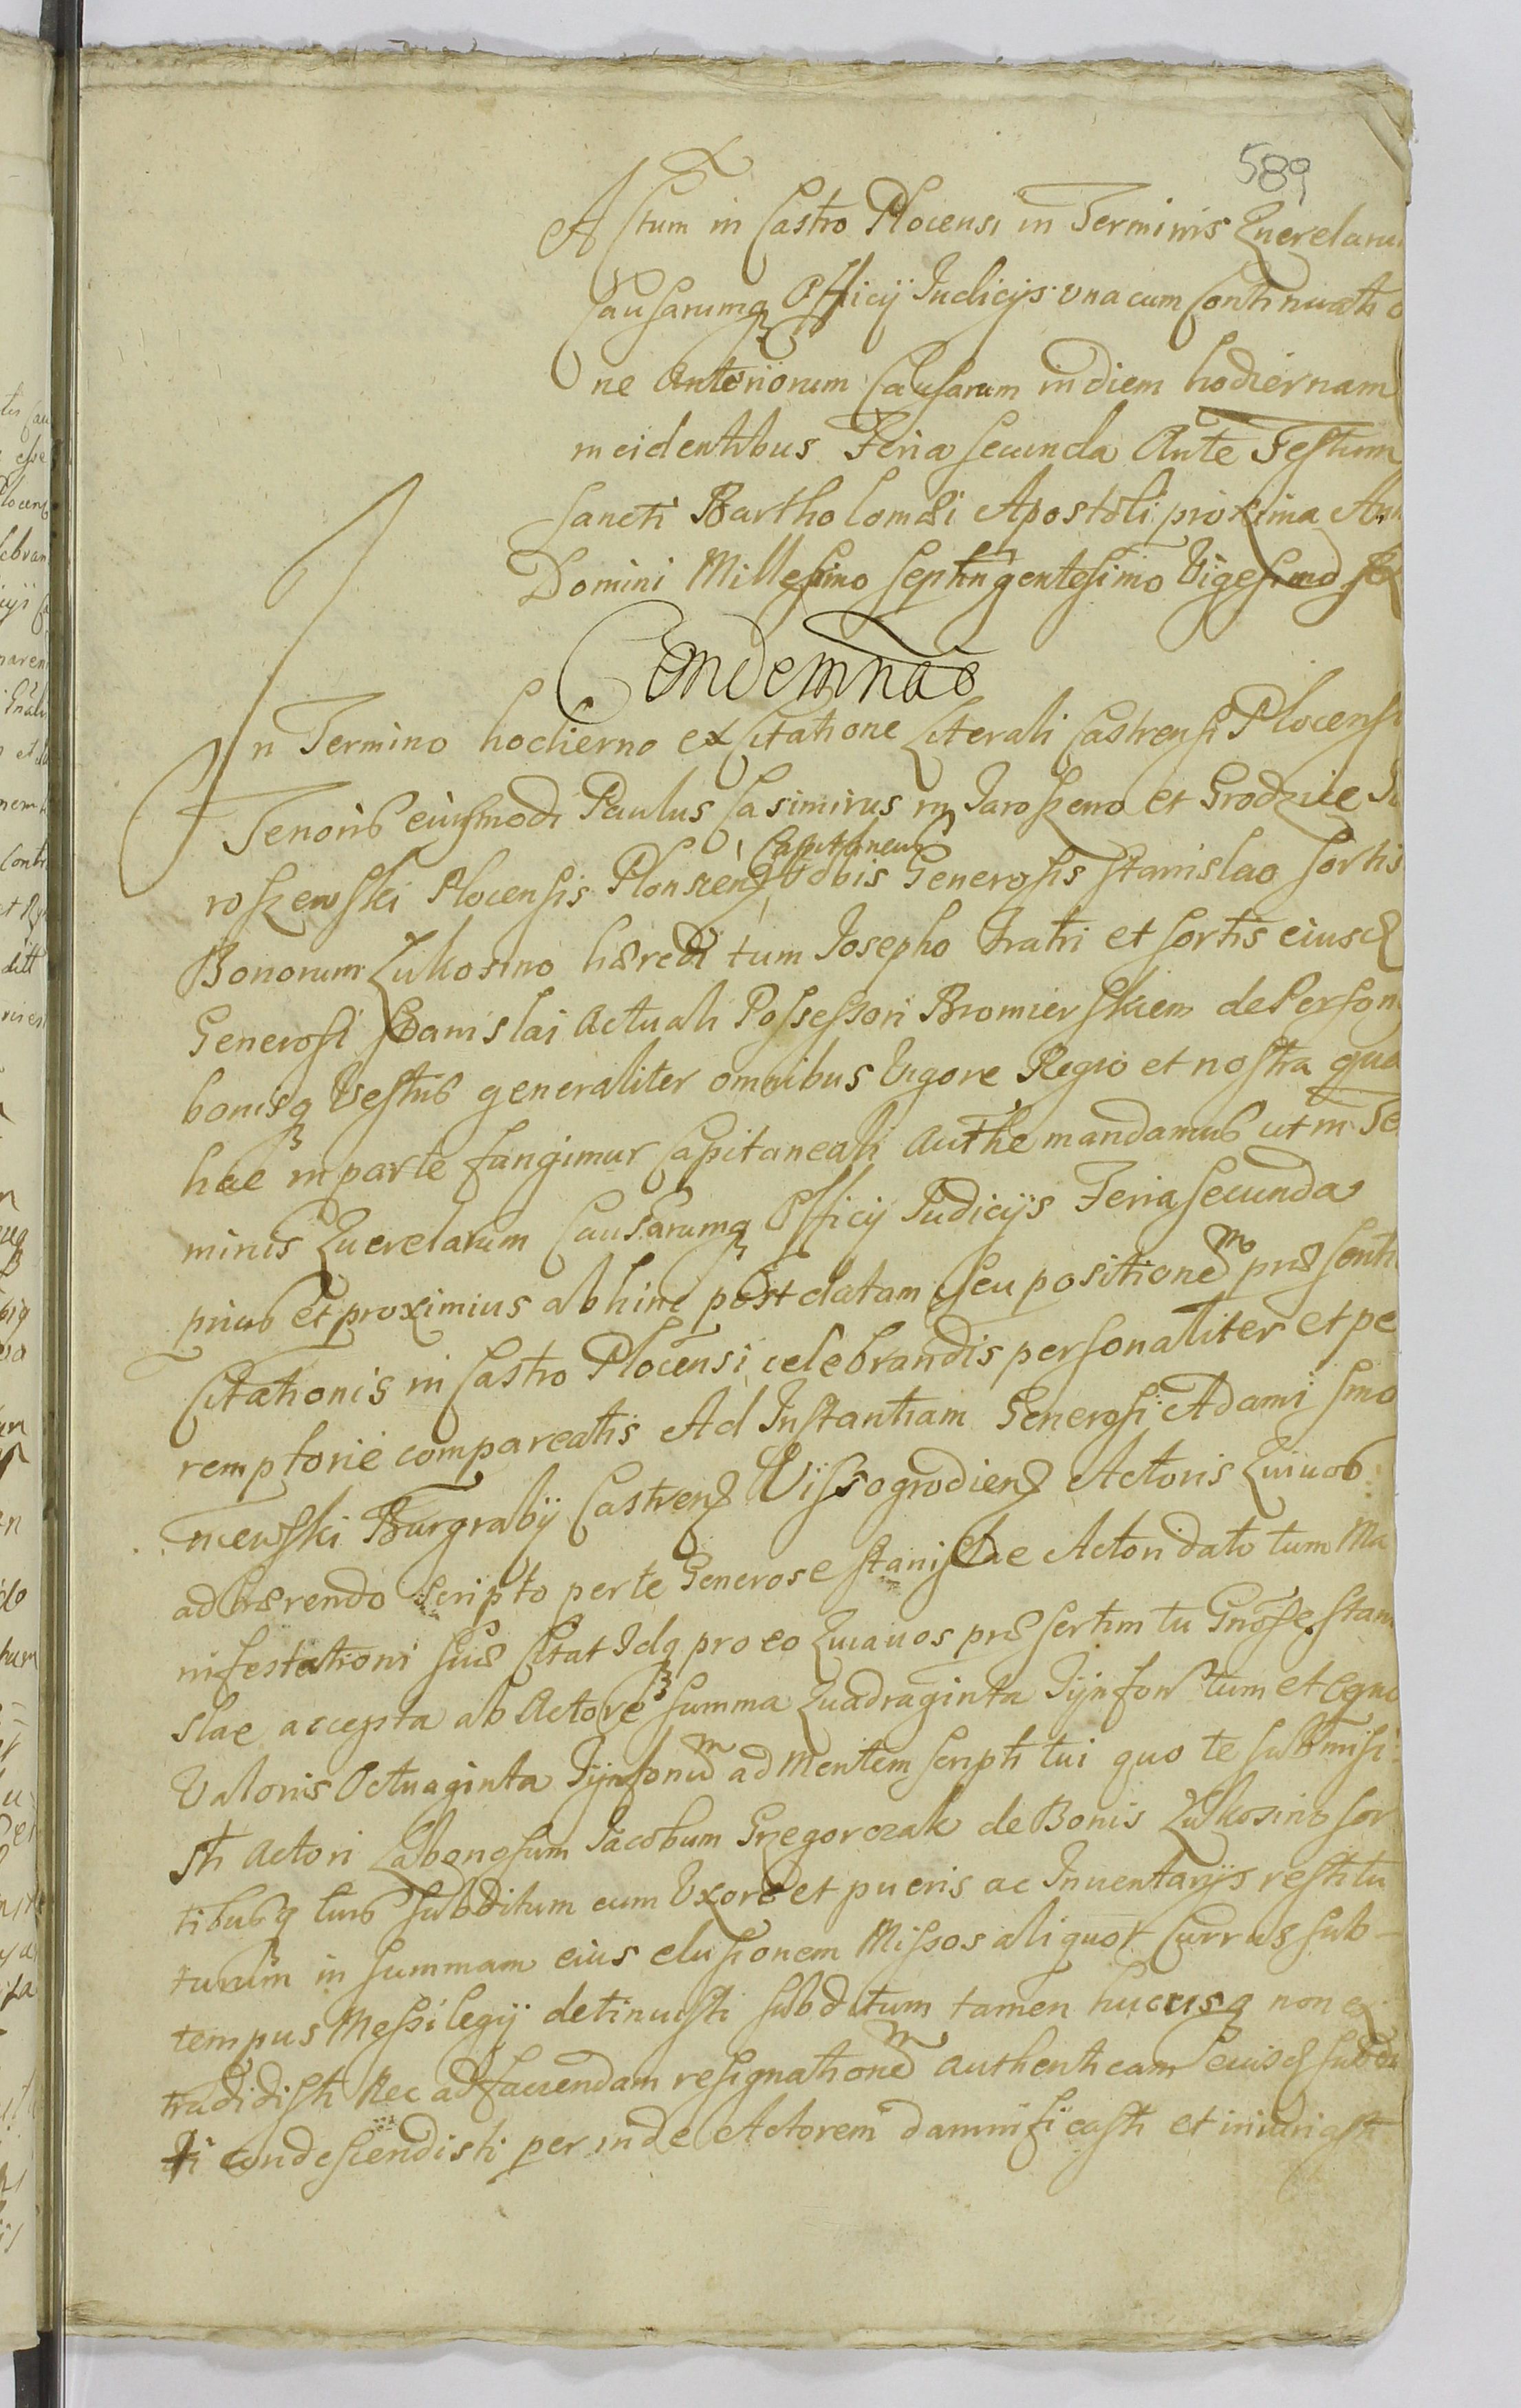 589
Actum in Castro Plocensi in Terminis Querelarum
Causarumq Officij Iudicijs una cum Continuatio
ne Anteriorum Causarum in diem hodiernam
incidentibus Feria Secunda Ante Festum
Sancti Bartholomæi Apostoli proxima
Domini Millesimo Septingentesimo Vigesimo
Condemnao
In Termino hodierno ex Citatione Literali Castrensi Plocensi
Tenoris eiusmodi Paulus Casimirus in Jaroszewo et Grodziec Ja
roszewski Plocensis Plonscens Capitaneus Vobis Generosis Stanislao Sortis
Bonorum Zukosino hæredi tum Iosepho Fratri et Sortis eiusd
Generosi Stanislai Actuali Possessori Bromierskiem de Person
bonisq Vestris generaliter omnibus Vigore Regio et nostra qua
hac in parte fungimur Capitaneali Authe mandamus ut in Te
minis Querelarum Causarumq Officij Iudicijs Feria Secunda
prius et proximius ab hinc post datam seu positionem præsenti
Citationis in Castro Plocensi celebrandis personaliter et pe
remptorie compareatis Ad Instantiam Generosi Adami Smo
niewski Burgrabij Castrens Vissogrodiens Actoris Qui vob
adhærendo scripto per te Generose Stanislae Actori dato tum Ma
nifestationi suæ Citat Idq pro eo Quia vos præsertim tu Gnose Stani
slae accepta ab Actore summa Quadraginta Tynfon tum et Equo
Valoris Octuaginta Tynfonum ad Mentem scripti tui quo te submisi
sti Actori Laboriosum Jacobum Grzegorczak de Bonis Zukosino sor
tibusq tuis subditum cum Uxore et pueris ac Inventarijs restitu
turum in summam eius elusionem Missos aliquot Currus sub
tempus Messilegij detinuisti subditum tamen hucusq non ex
tradidisti Nec ad faciendam resignationem authenticam eiusd subdi
ti condescendisti per inde Actorem damnificasti et iniuriasti